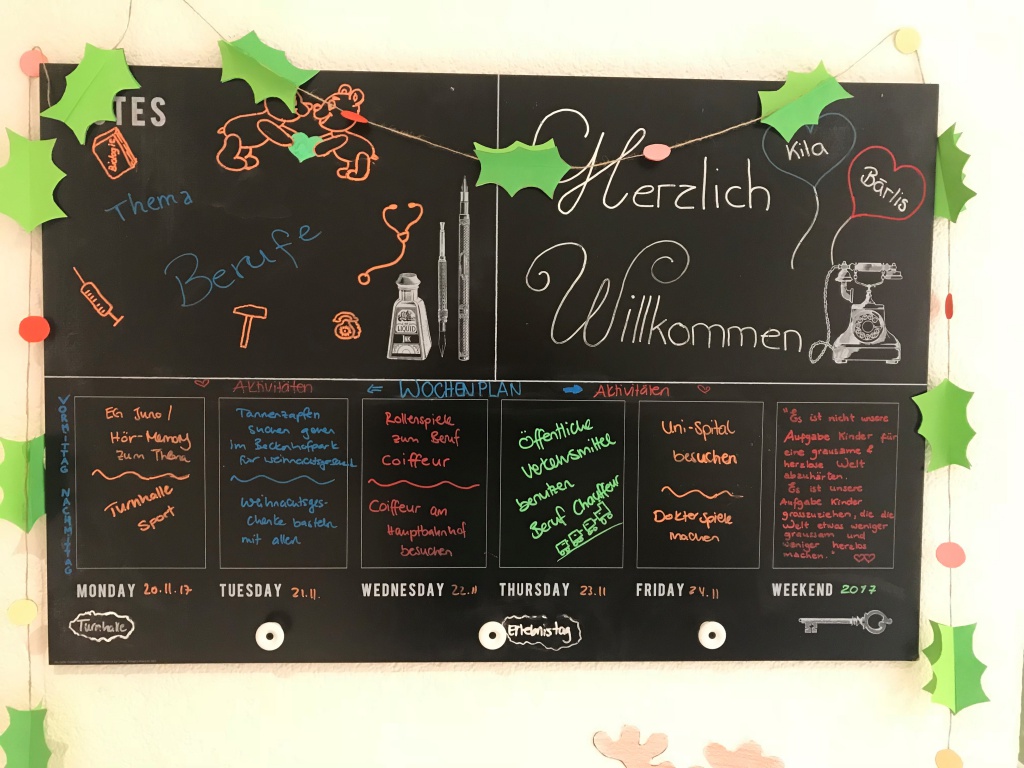 TES
Biologie
Thema
Berufe
LIQUID
INK
Herzlich
Willkommen
Kila
Bärlis
Aktivitäten
WOCHENPLAN
Aktivitäten
VORMITTAG
NACHMITTAG
EG Juno /
Hör-Memory
zum Thema
Turnhalle
Sport
Tannenzapfen
suchen gehen
im Beckenhofpark
für
Weihnachtsges-
chenke basteln
mit allen
Rollenspiele
zum Beruf
Coiffeur
Coiffeur am
Hauptbahnhof
besuchen
Öffentliche
Verkehrsmittel
benutzen
Beruf Chauffeur
Uni-Spital
besuchen
Dokterspiele
machen
"Es ist nicht unsere
Aufgabe Kinder für
eine grausame &
herzlose Welt
abzuhärten.
Es ist unsere
Aufgabe Kinder
grosszuziehen, die die
Welt etwas weniger
graussam und
weniger herzlos
machen."
MONDAY 20.11.17
TUESDAY 21.11.
WEDNESDAY 22.11
THURSDAY 23.11
FRIDAY 24.11
WEEKEND 2017
Turnhalle
Erlebnistag